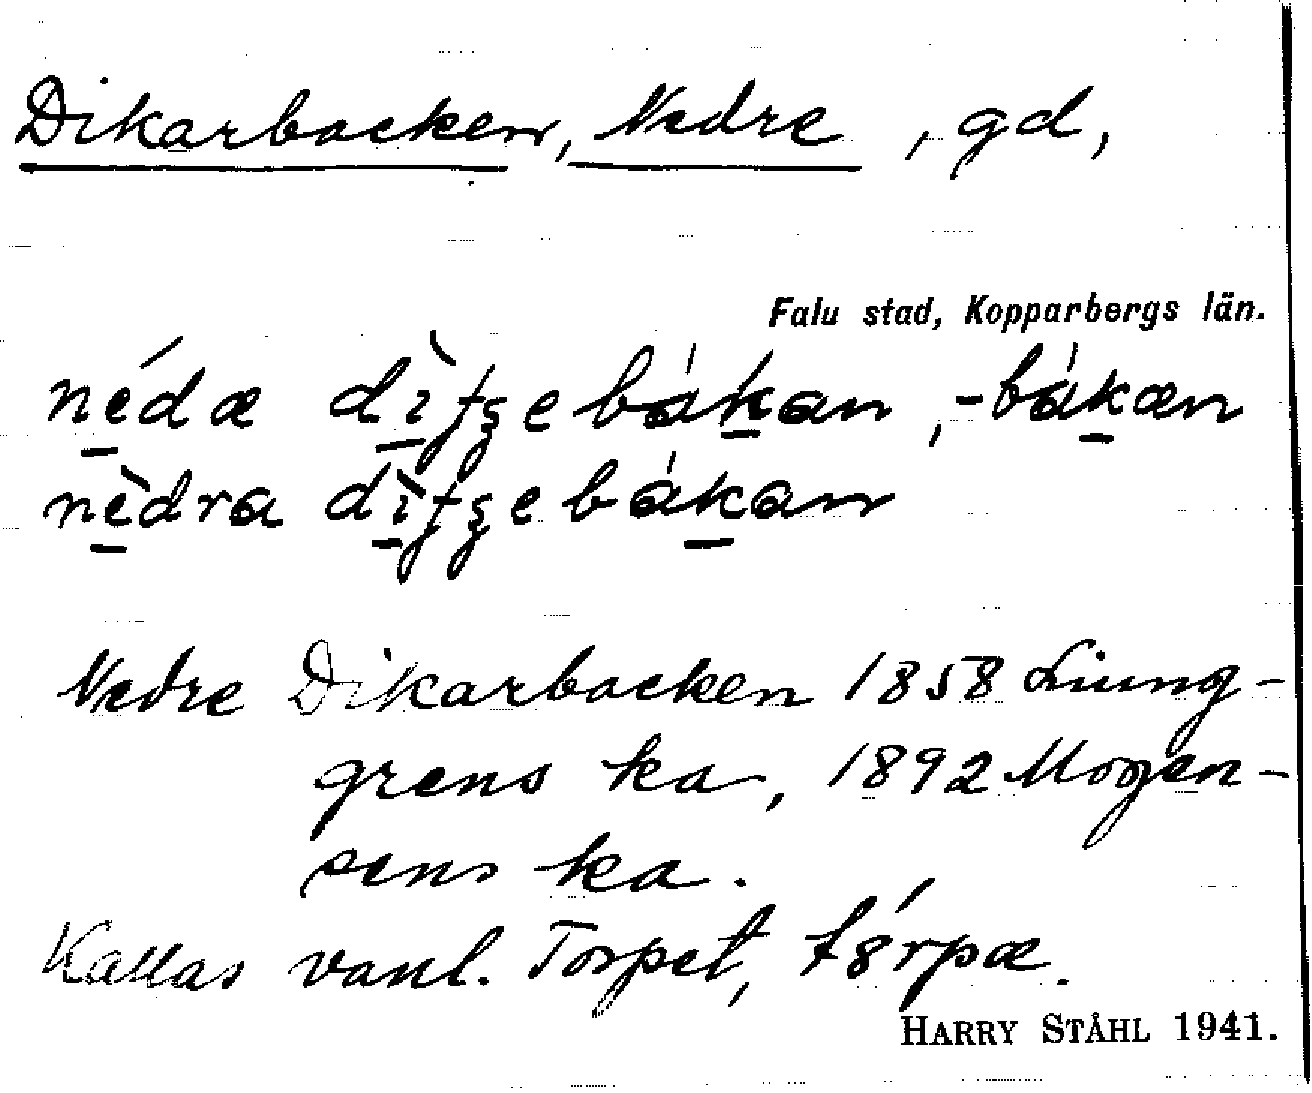 Dikarbacken, Nedre, gd,
Falu stad, Kopparbergs län.
nédæ
nèdra
Nedre Dikarbacken 1858 Liung-
grens ka, 1892 Mogen-
sens ka.
Kallas vanl. Torpet, tȣ́rpæ.
HARRY STÅHL 1941.